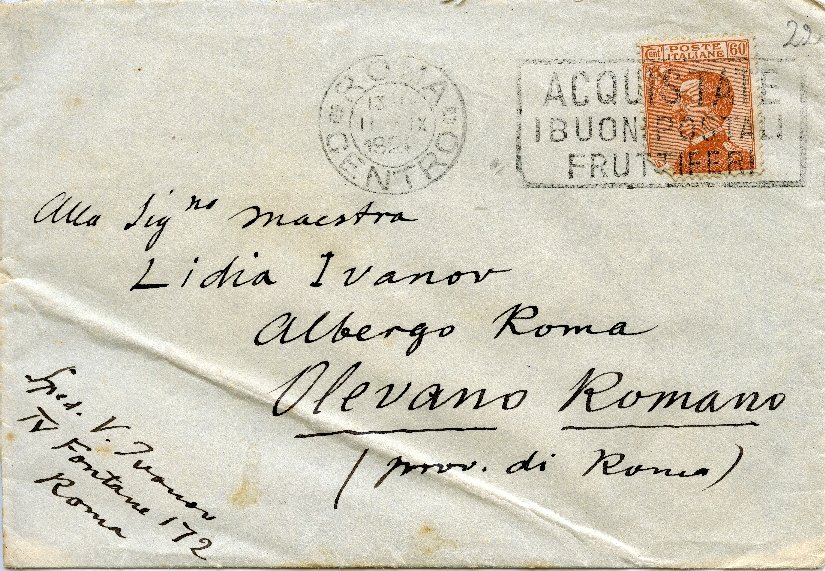 22
Cent POSTE ITALIANE 60
ROMA
CENTRO
ACQUISTATE
I BUONI POSTALI
FRUTTIFERI
Alla Signa Maestra
Lidia Ivanov
Albergo Roma
Olevano Romano
(prov. di Roma)
Sped. V. Ivanov
IV Fontane 172
Roma